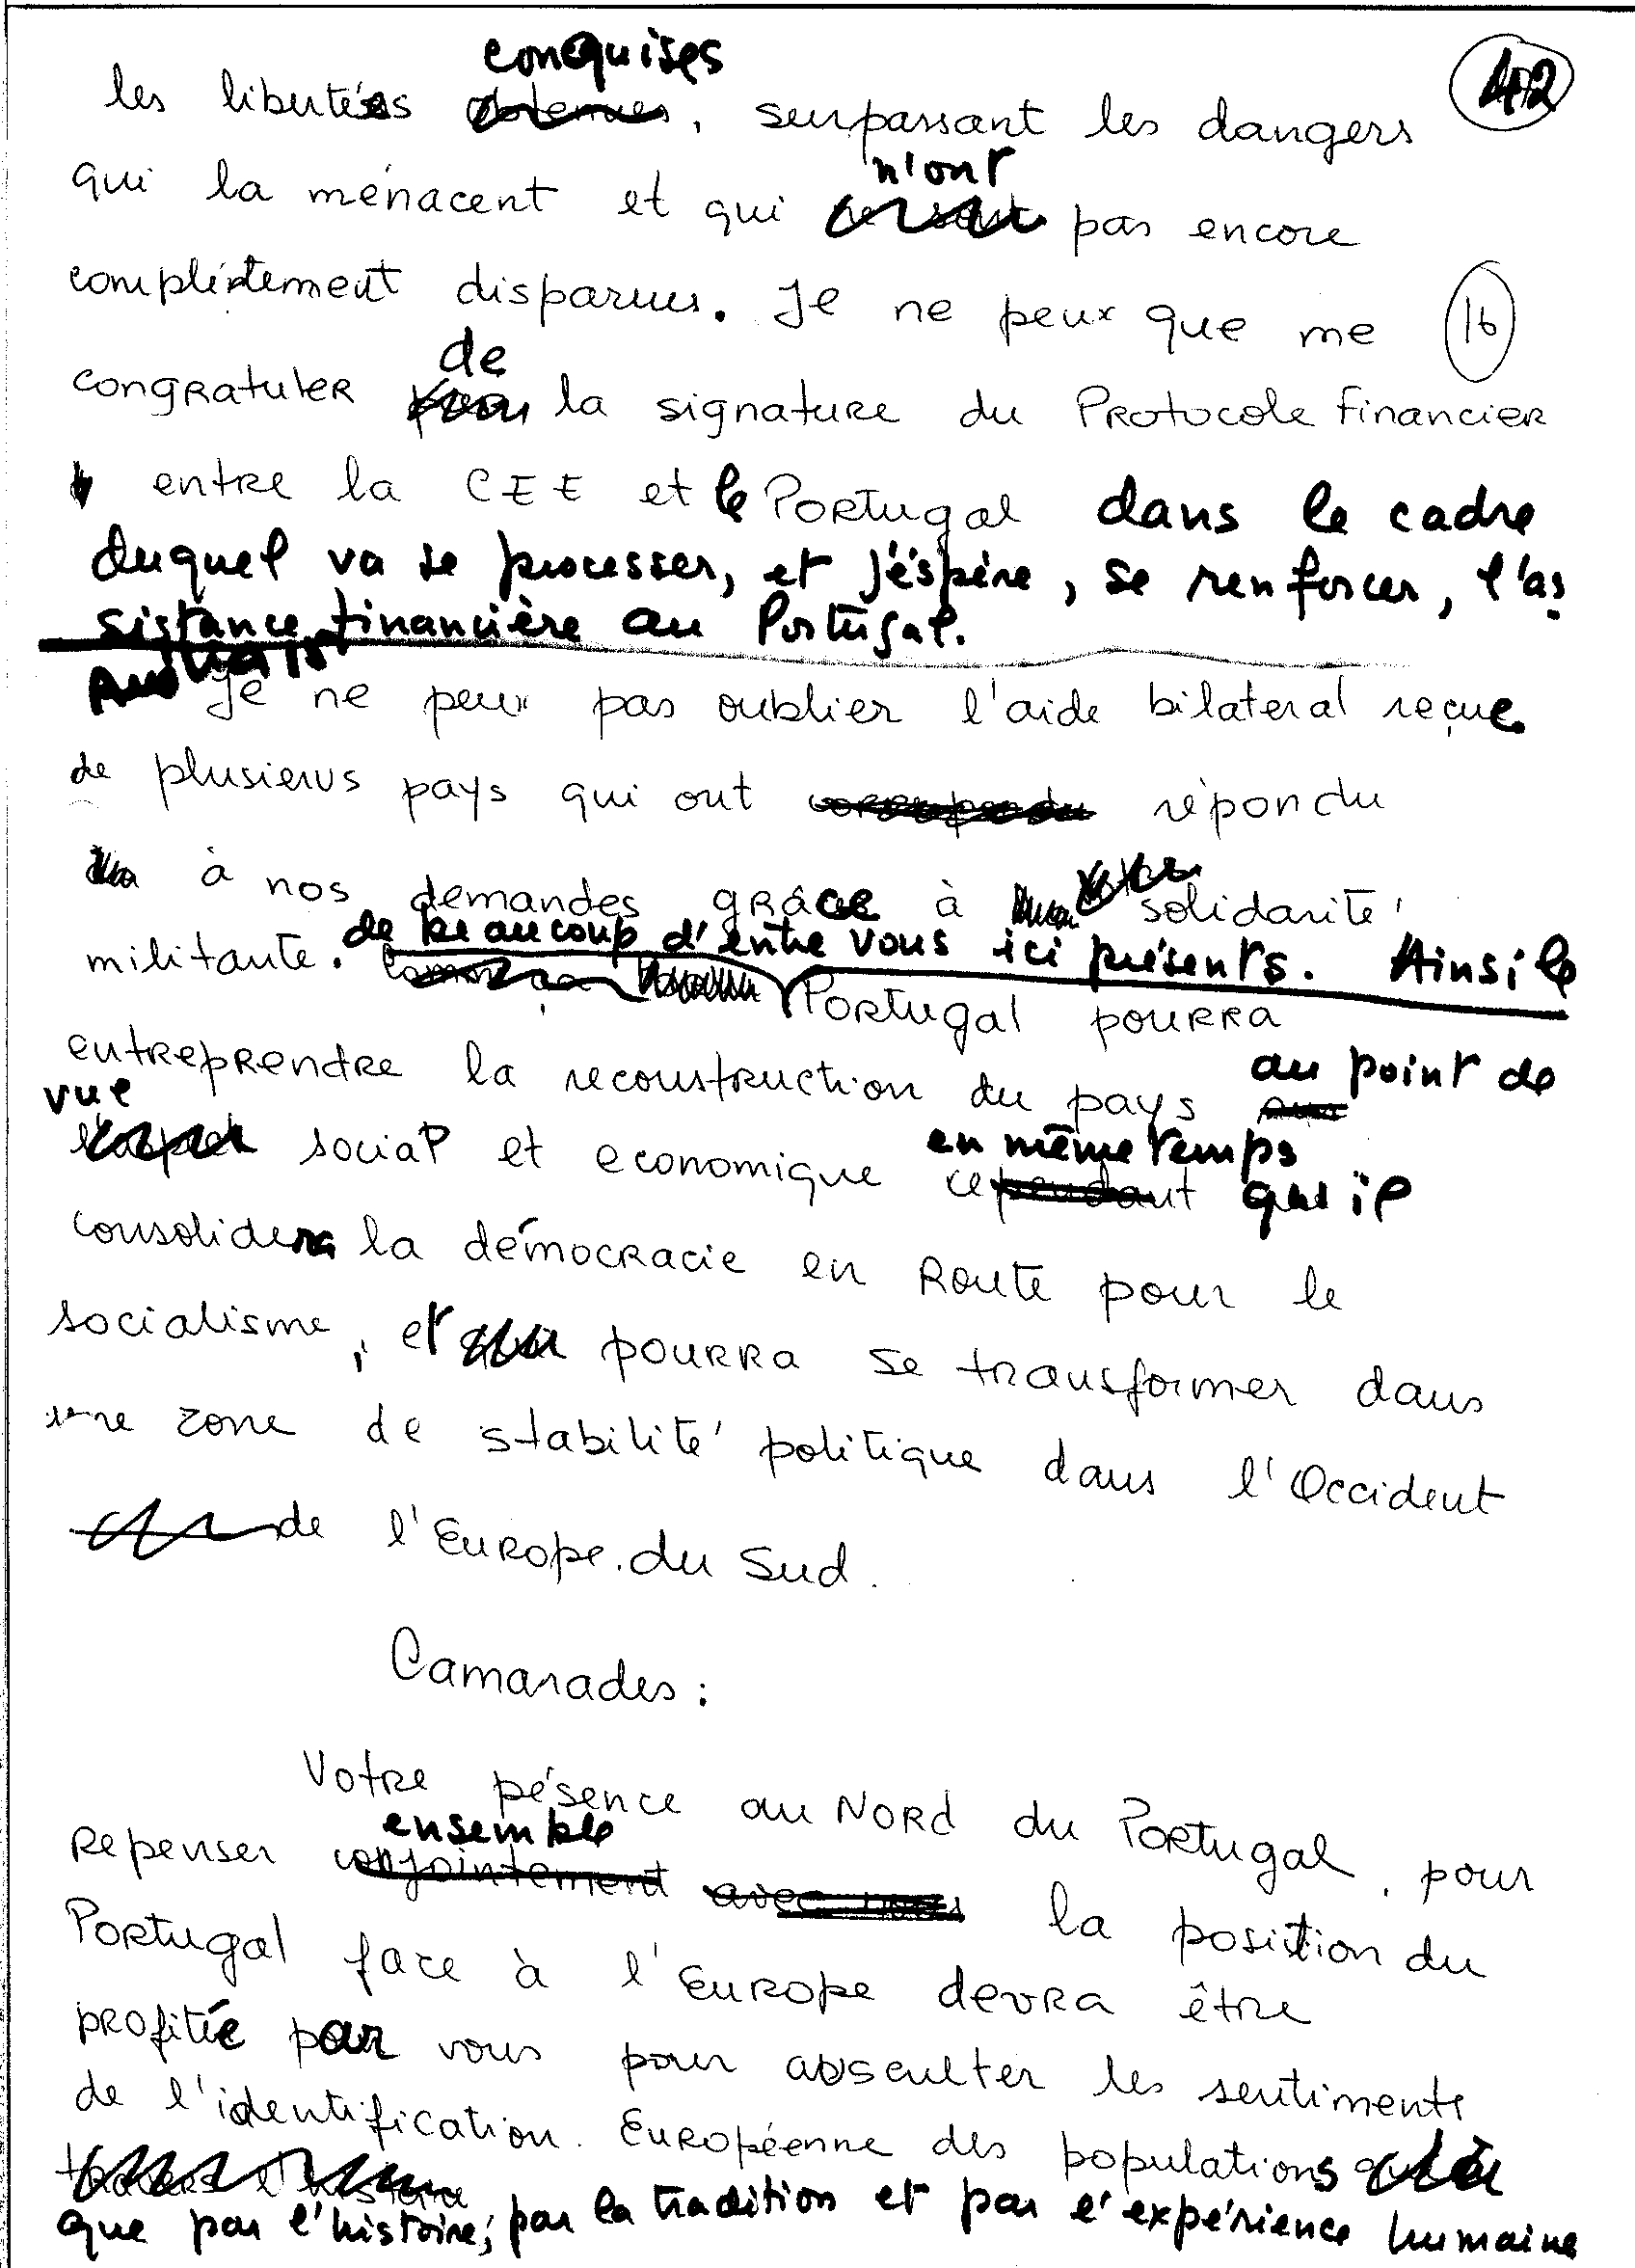 conquises
42
les libertées obtenues, surpassant les dangers
n'ont
qui la ménacent et qui ne sont pas encore
complétement disparus. Je ne peux que me
16
de
congratuler la signature du Protocole Financier
entre la CEE et le Portugal dans le cadre
duquel va se processer, et j'éspére, se renforcer, l'as
sistance financière au Portugal.
Mais
Je ne peux pas oublier l'aide bilateral reçue
de plusieurs pays qui ont correspondu répondu
à nos demandes grâce à solidarité
de beaucoup d'entre vous ici présents. Ainsi le
militante. Portugal pourra
entreprendre la reconstruction du pays
au point de
vue
l'aspect social et economique cependant que il
en même temps
consolidera la démocracie en Route pour le
socialisme, et pourra se transformer dans
une zone de stabilité politique dans l'Occident
de l'Europe du Sud.
Camarades:
Votre pésence au Nord du Portugal, pour
ensemble
Repenser conjointement avec nous la position du
Portugal face à l'Europe devra être
profitée par vous pour absculter les sentiments
de l'identification Européenne des populations
travers l'histoire
que par l'histoire, par la tradition et par l'expérience humaine